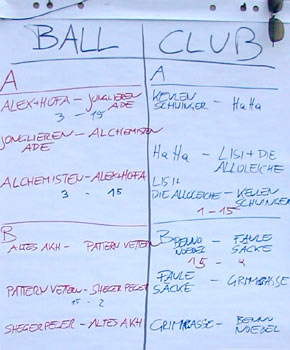 BALL
A
ALEX+HOFA – JONGLIEREN
ADE
3 - 15
JONGLIEREN – ALCHEMISTEN
ADE
ALCHEMISTEN – ALEX+HOFA
3 - 15
B
ALTES AKH – PATTERN VETERN
PATTERN VETERN – SHEGER PEGER
15 - 2
SHEGERPEGER – ALTES AKH
CLUB
A
KEULEN
SCHWINGER – HaHa
HaHa – LISI + DIE
ALLOLEICHE
LISI +
DIE ALLOLEICHE – KEULEN
SCHWINGER
1 - 15
B
BENNO
NOEBEL – FAULE
SÄCKE
15 -
FAULE
SÄCKE – GRIMBASSE
GRIMBASSE – BENNO
NOEBEL